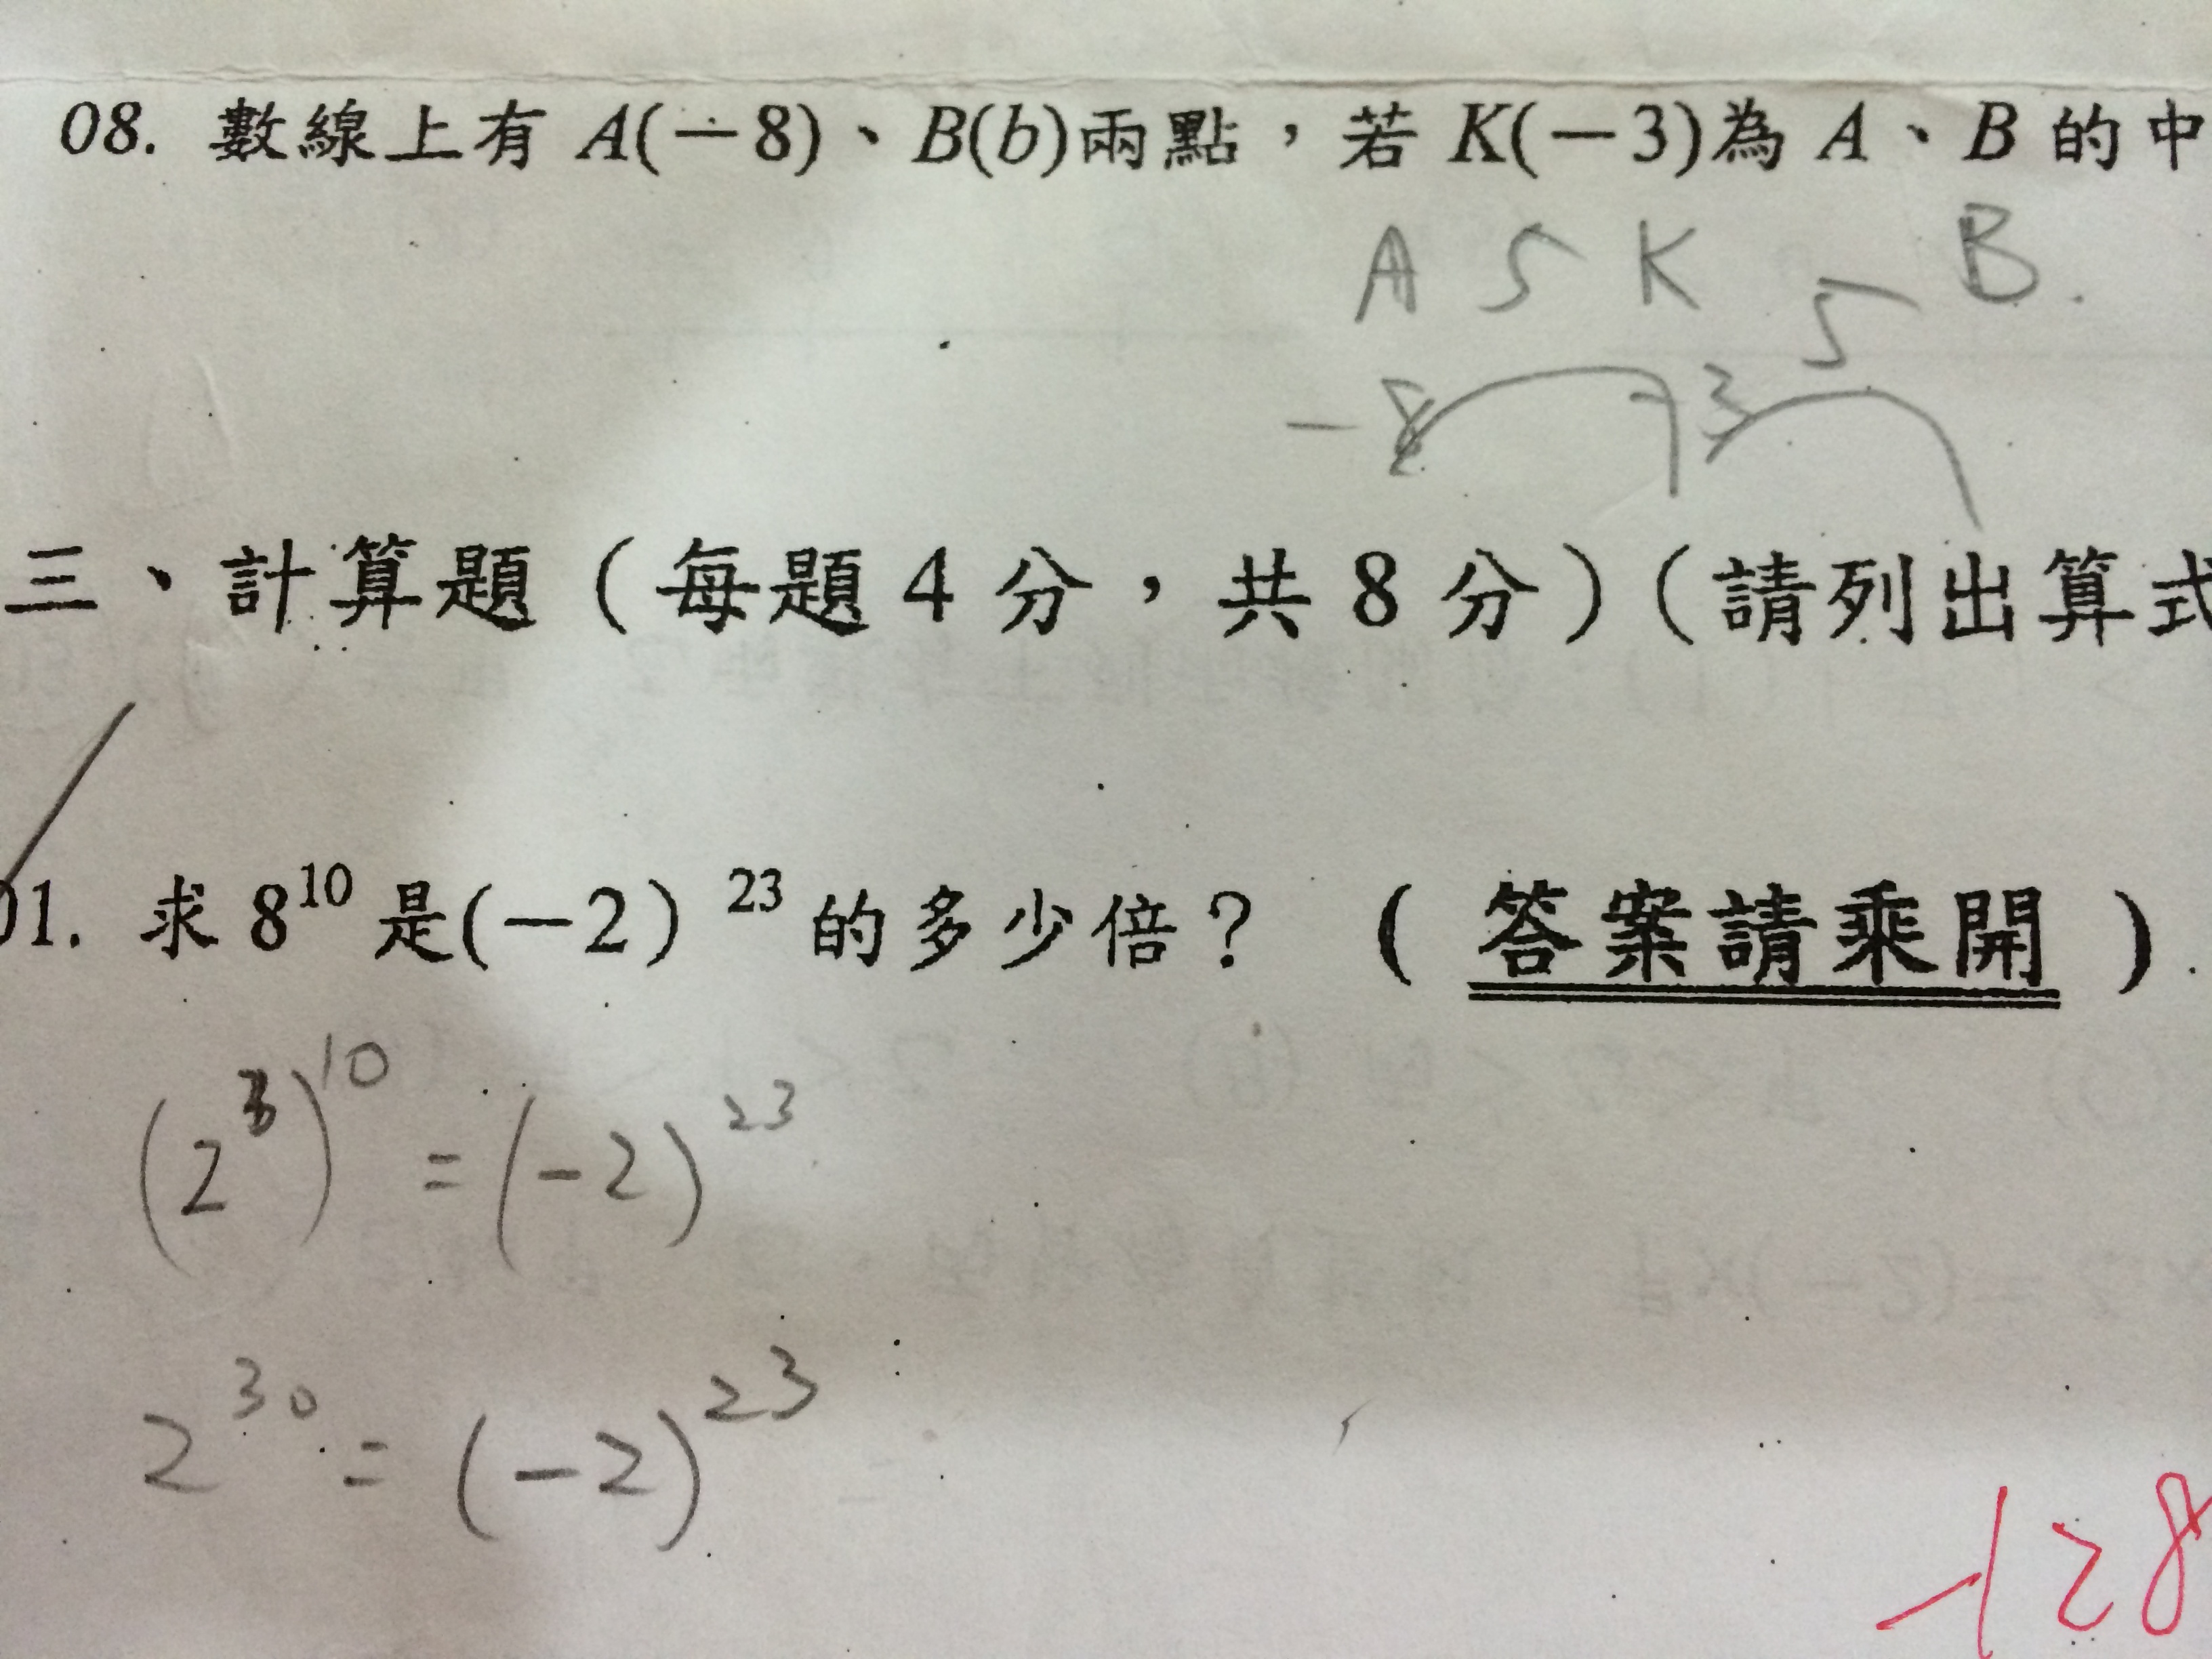 08. 數線上有 A(－8)、B(b)兩點，若 K(－3)為 A、B 的中
A 5 K 5 B.
－8 －3
三、計算題（每題 4 分，共 8 分）（請列出算式
01. 求 8¹⁰ 是(－2）²³ 的多少倍？ （ 答案請乘開 ）.
(2³)¹⁰ = (－2)²³
2³⁰ = (－2)²³
－128